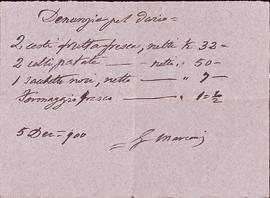 Denunzia pel dazio =
2 cesti frutta fresca, netti K 32 –
2 colli patate — — netti „ 50 –
1 sachetto noci, netto — „ 7 –
Formaggio fresco — „ 1 ½
5 Dec = 900
G Marconi